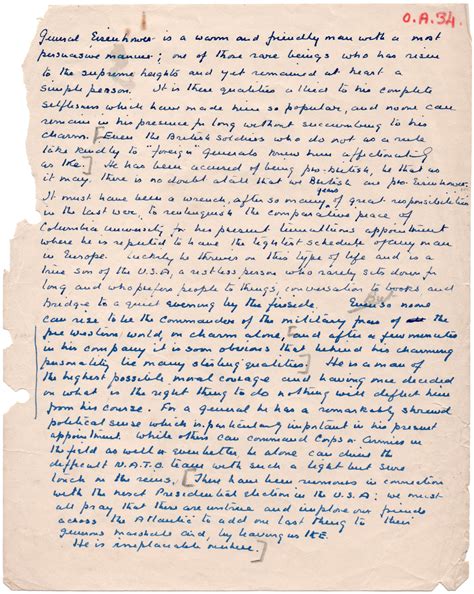 O.A.34.
General Eisenhower is a warm and friendly man with a most
persuasive manner; one of those rare beings who has risen
to the supreme heights and yet remained at heart a
simple person. It is these qualities allied to his complete
selflessness which have made him so popular, and none can
remain in his presence for long without succumbing to his
charm. [Even the British soldiers who do not as a rule
take kindly to "foreign" generals knew him affectionately
as IKE.] He has been accused of being pro-British, be that as
it may, there is no doubt at all that we British are pro-Eisenhower.
It must have been a wrench, after so many years of great responsibilities
in the last war, to relinquish the comparative peace of
Columbia university for his present appointment
where he is reputed to have the tightest schedule of any man
in Europe. Luckily he thrives on this type of life and is a
true son of the U.S.A, a restless person who rarely sits down for
long and who prefers people to things, conversation to books and
Bridge to a quiet evening by the fireside. But none
can rise to be the Commander of the military force of the
free western world, on charm alone, [and after a few minutes
in his company it is soon obvious that behind his charming
personality lie many sterling qualities.] He is a man of
the highest possible moral courage and having once decided
on what is the right thing to do nothing will deflect him
from his course. For a general he has a remarkably shrewd
political sense which is particularly important in his present
appointment. While others can command Corps or Armies in
the field as well or even better, he alone can drive the
difficult N.A.T.O. team with such a light but sure
touch on the reins. [There have been rumours in connection
with the next Presidential election in the U.S.A; we must
all pray that these are untrue and implore our friends
across the Atlantic to add one last thing to their
generous marshall aid, by leaving us IKE.
He is irreplaceable here.]